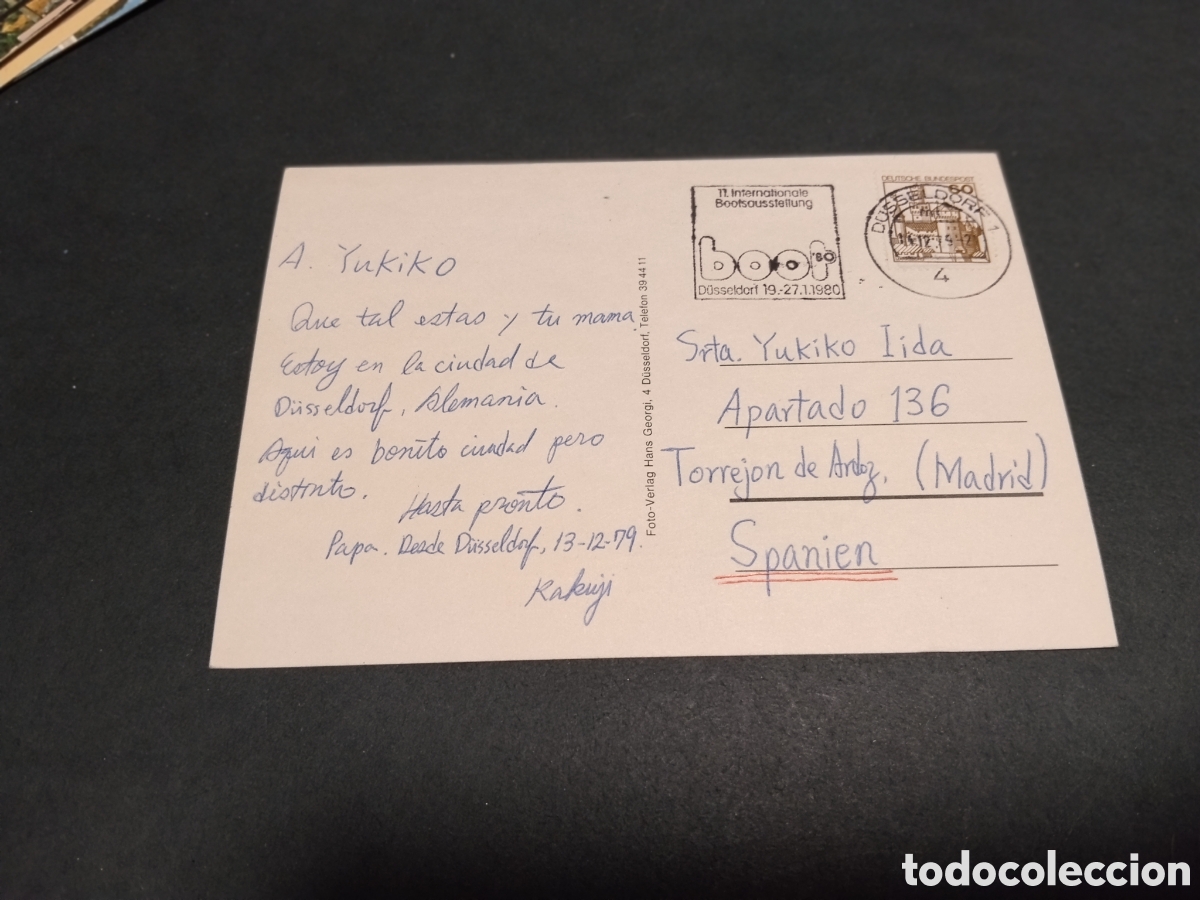 A. Yukiko
Que tal estas y tu mama.
Estoy en la ciudad de
Düsseldorf, Alemania.
Aqui es bonito ciudad pero
distinto.
Hasta pronto.
Papa. Desde Düsseldorf, 13-12-79.
Kakuji
Foto-Verlag Hans Georgi, 4 Düsseldorf, Telefon 39 44 11
11. Internationale
Bootsausstellung
boot '80
Düsseldorf 19.-27.1.1980
DEUTSCHE BUNDESPOST
60
DÜSSELDORF 1
4
Srta. Yukiko Iida
Apartado 136
Torrejon de Ardoz, (Madrid)
Spanien
todocoleccion